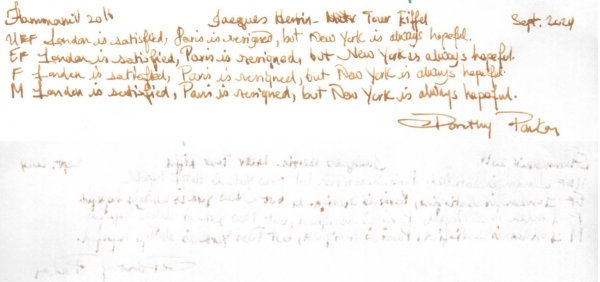 Hammermill 20 lb Jacques Herbin - Tour Eiffel Sept. 2024
UEF London is satisfied, Paris is resigned, but New York is always hopeful.
EF London is satisfied, Paris is resigned, but New York is always hopeful.
F London is satisfied, Paris is resigned, but New York is always hopeful.
M London is satisfied, Paris is resigned, but New York is always hopeful.
Dorothy Parker